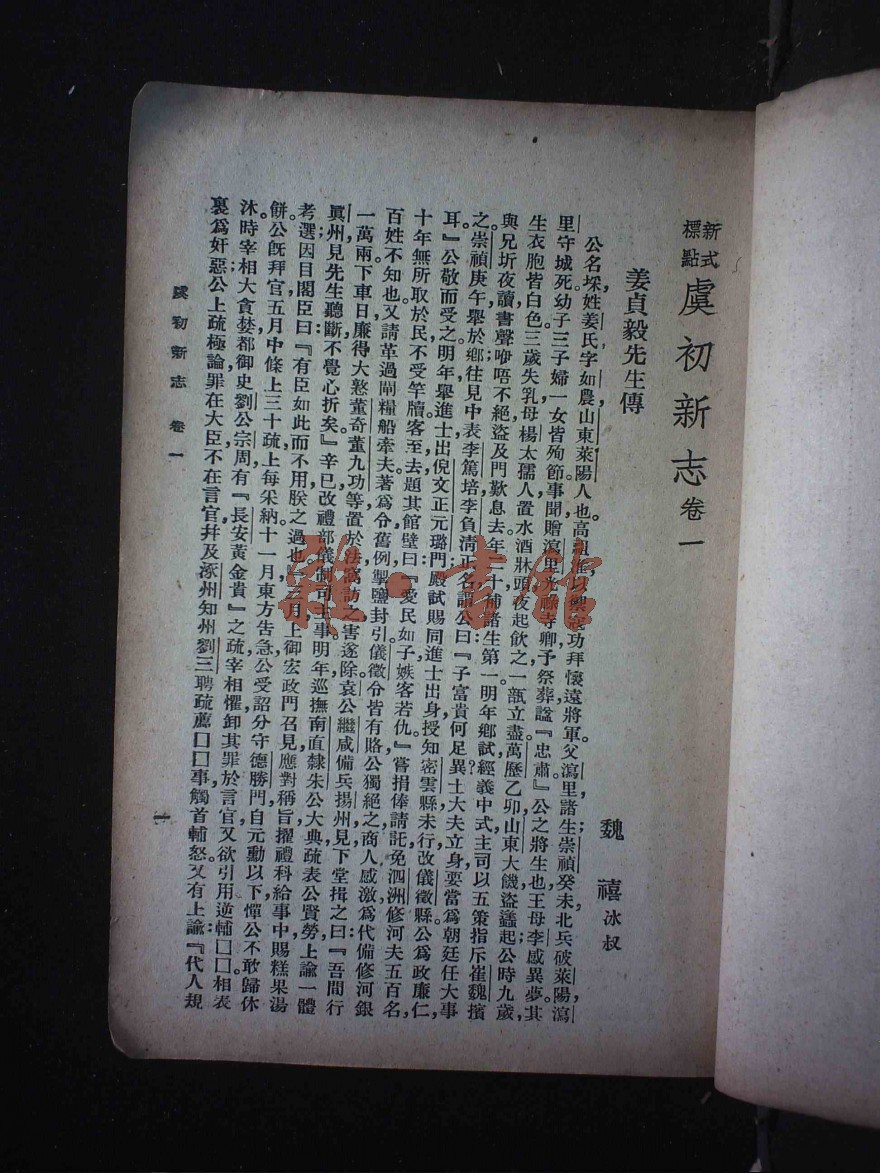 新式標點 虞初新志 卷一
姜貞毅先生傳
魏禧冰叔
公名埰，姓姜氏，字如農，山東萊陽人也。高祖以禦寇功，拜懷遠將軍。父瀉里，諸生；崇禎癸未，北兵破萊陽，瀉
里守城死，幼子三子婦一女皆殉節。事聞，贈瀉里光祿寺卿，予祭葬，謚『忠肅』。公之將生也，王母李感異夢。其
生衣胞皆白色，三歲失乳，母楊太孺人置水酒牀頭，夜起飲之，一瓻立盡。萬歷乙卯，山東大饑，盜蠭起；公時九歲，
與兄圻夜讀，書聲咿唔不絕，盜及門歎息去。年二十補諸生第一，明年鄉試，經義中式，主司以五策指斥崔魏，擯
之。崇禎庚午，舉於鄉，往見中表李篤培，李負清正名，謂公曰：『子富貴何足異？士大夫立身，要當爲朝廷任大事
耳。』公敬而受之。明年舉進士，出倪文正元璐門；殿試賜同進士出身，授知密雲縣，未行，改儀徵縣。公爲政廉仁，
十年無所取於民，不受竿牘，客至去，題其館壁曰：『愛民如子，嫉客若仇。』嘗捐俸請託免泗洲修河夫五百名，
百姓不知也。又請革過閘糧船牽夫，著爲令。舊例：掣鹽封引，儀徵令皆有賂，公獨絕之；商人感激，爲代備修河銀
一萬兩。下車日，廉得大憝董奇董九功等，置於法，窩訪之害遂除。袁公繼咸備兵揚州，見下堂揖之曰：『吾聞行
眞州，見先生聽斷，不覺心折矣。』辛已改禮部儀制司主事，明年，巡撫南直隸朱公大典疏表公賢勞，上諭一體
考選，因目閣臣曰：『有臣如此而不用，朕之過也。』三月，上御宏政門召見，應對稱旨，擢禮科給事中，賜糕果湯
餅。公既拜官，五月中條上三十疏，上每采納。十一月，東方告急，公受詔分守德勝門，自元勳以下憚公不敢歸休
沐。時宰相大貪婪，都御史劉公宗周有『長安黃金貴』之疏，宰相懼，卸其罪於言官，又欲引用逆輔囗囗，相表
裏爲奸惡，公上疏極論罪在大臣，不在言官，幷及涿州知州劉三聘疏薦囗囗事，觸首輔怒。又有上諭：『代人規
虞初新志 卷一
一
雜·書館